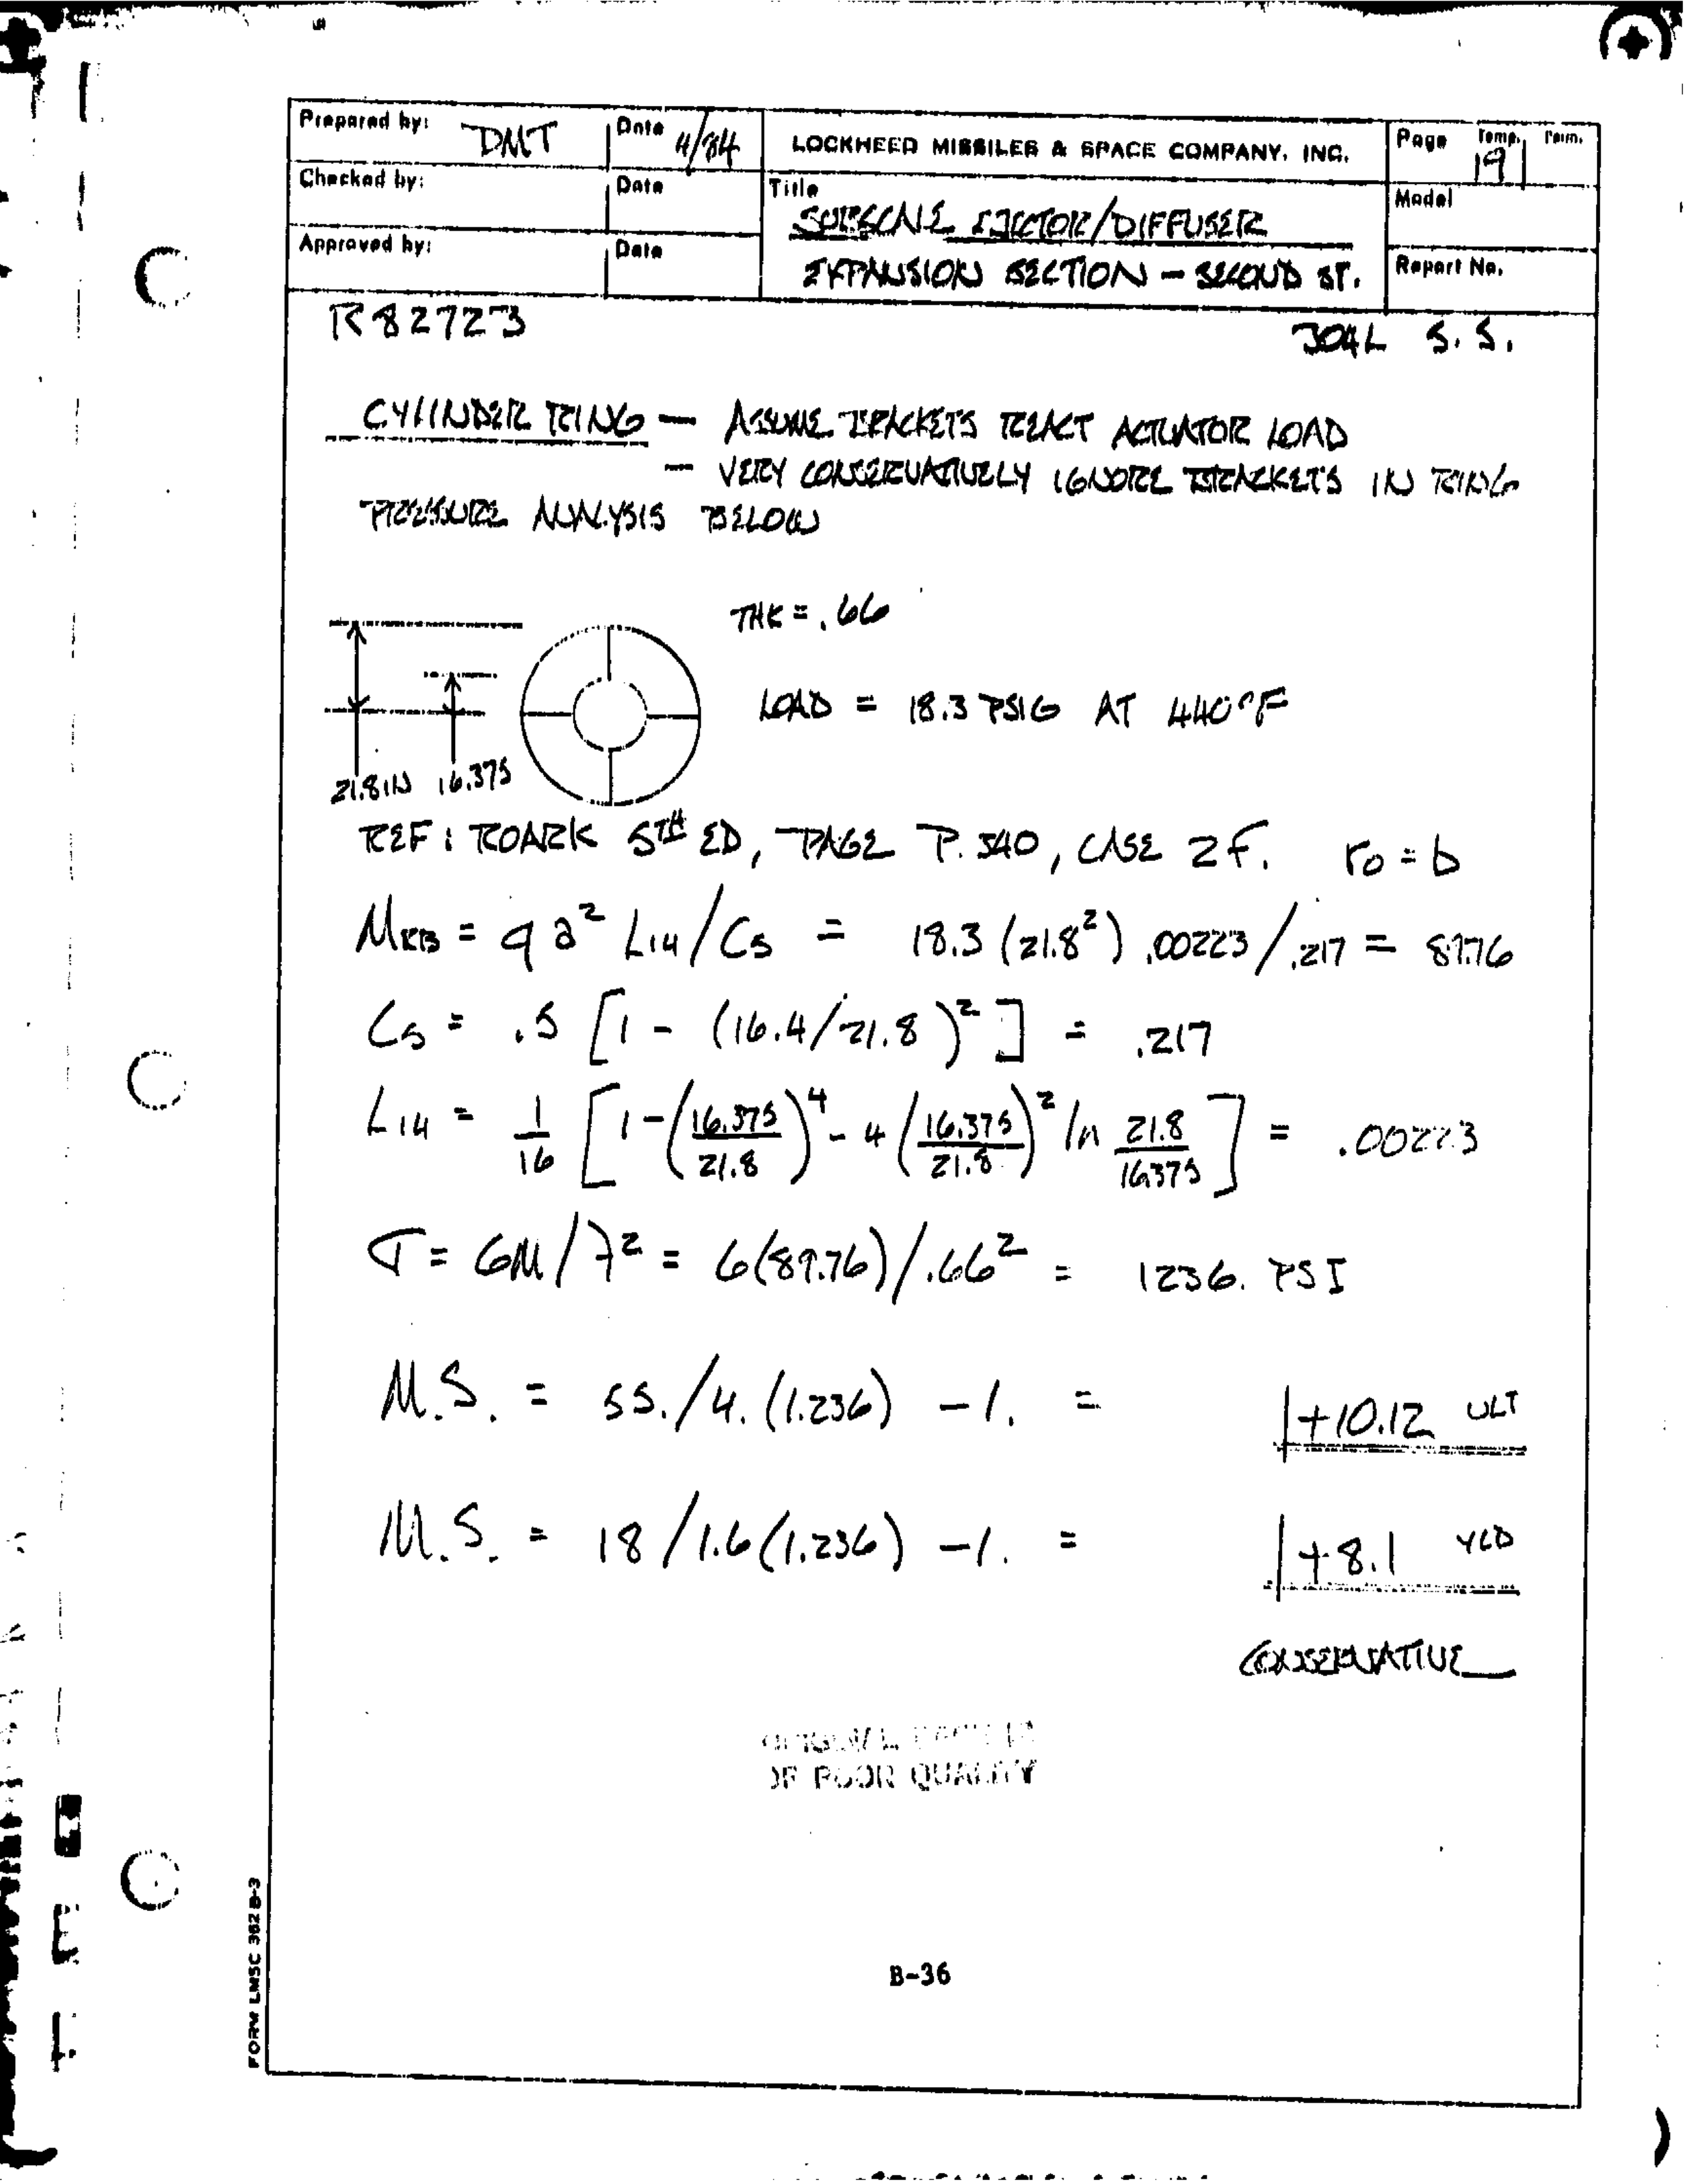 Prepared by: DMT Date 4/84 LOCKHEED MISSILES & SPACE COMPANY, INC. Page Temp. Perm.
19
Checked by: Date Title Model
SUBSCALE EJECTOR/DIFFUSER
Approved by: Date EXPANSION SECTION - SECOND ST. Report No.
R82723 304L S.S.
CYLINDER RING - ASSUME BRACKETS REACT ACTUATOR LOAD
- VERY CONSERVATIVELY IGNORE BRACKETS IN RING
PRESSURE ANALYSIS BELOW
THK = .66
LOAD = 18.3 PSIG AT 440°F
21.8IN 16.375
REF: ROARK 5TH ED, PAGE P. 340, CASE 2F. ro = b
MRB = q a² L14/C5 = 18.3 (21.8²) .00223/.217 = 89.76
C5 = .5 [1 - (16.4/21.8)²] = .217
L14 = 1/16 [1-(16.375/21.8)⁴ - 4(16.375/21.8)² ln 21.8/16.375] = .00223
σ = 6M/t² = 6(89.76)/.66² = 1236. PSI
M.S. = 55./4.(1.236) -1. = +10.12 ULT
M.S. = 18/1.6(1.236) -1. = +8.1 YLD
CONSERVATIVE
ORIGINAL PAGE IS
OF POOR QUALITY
B-36
FORM LMSC 362 B-3